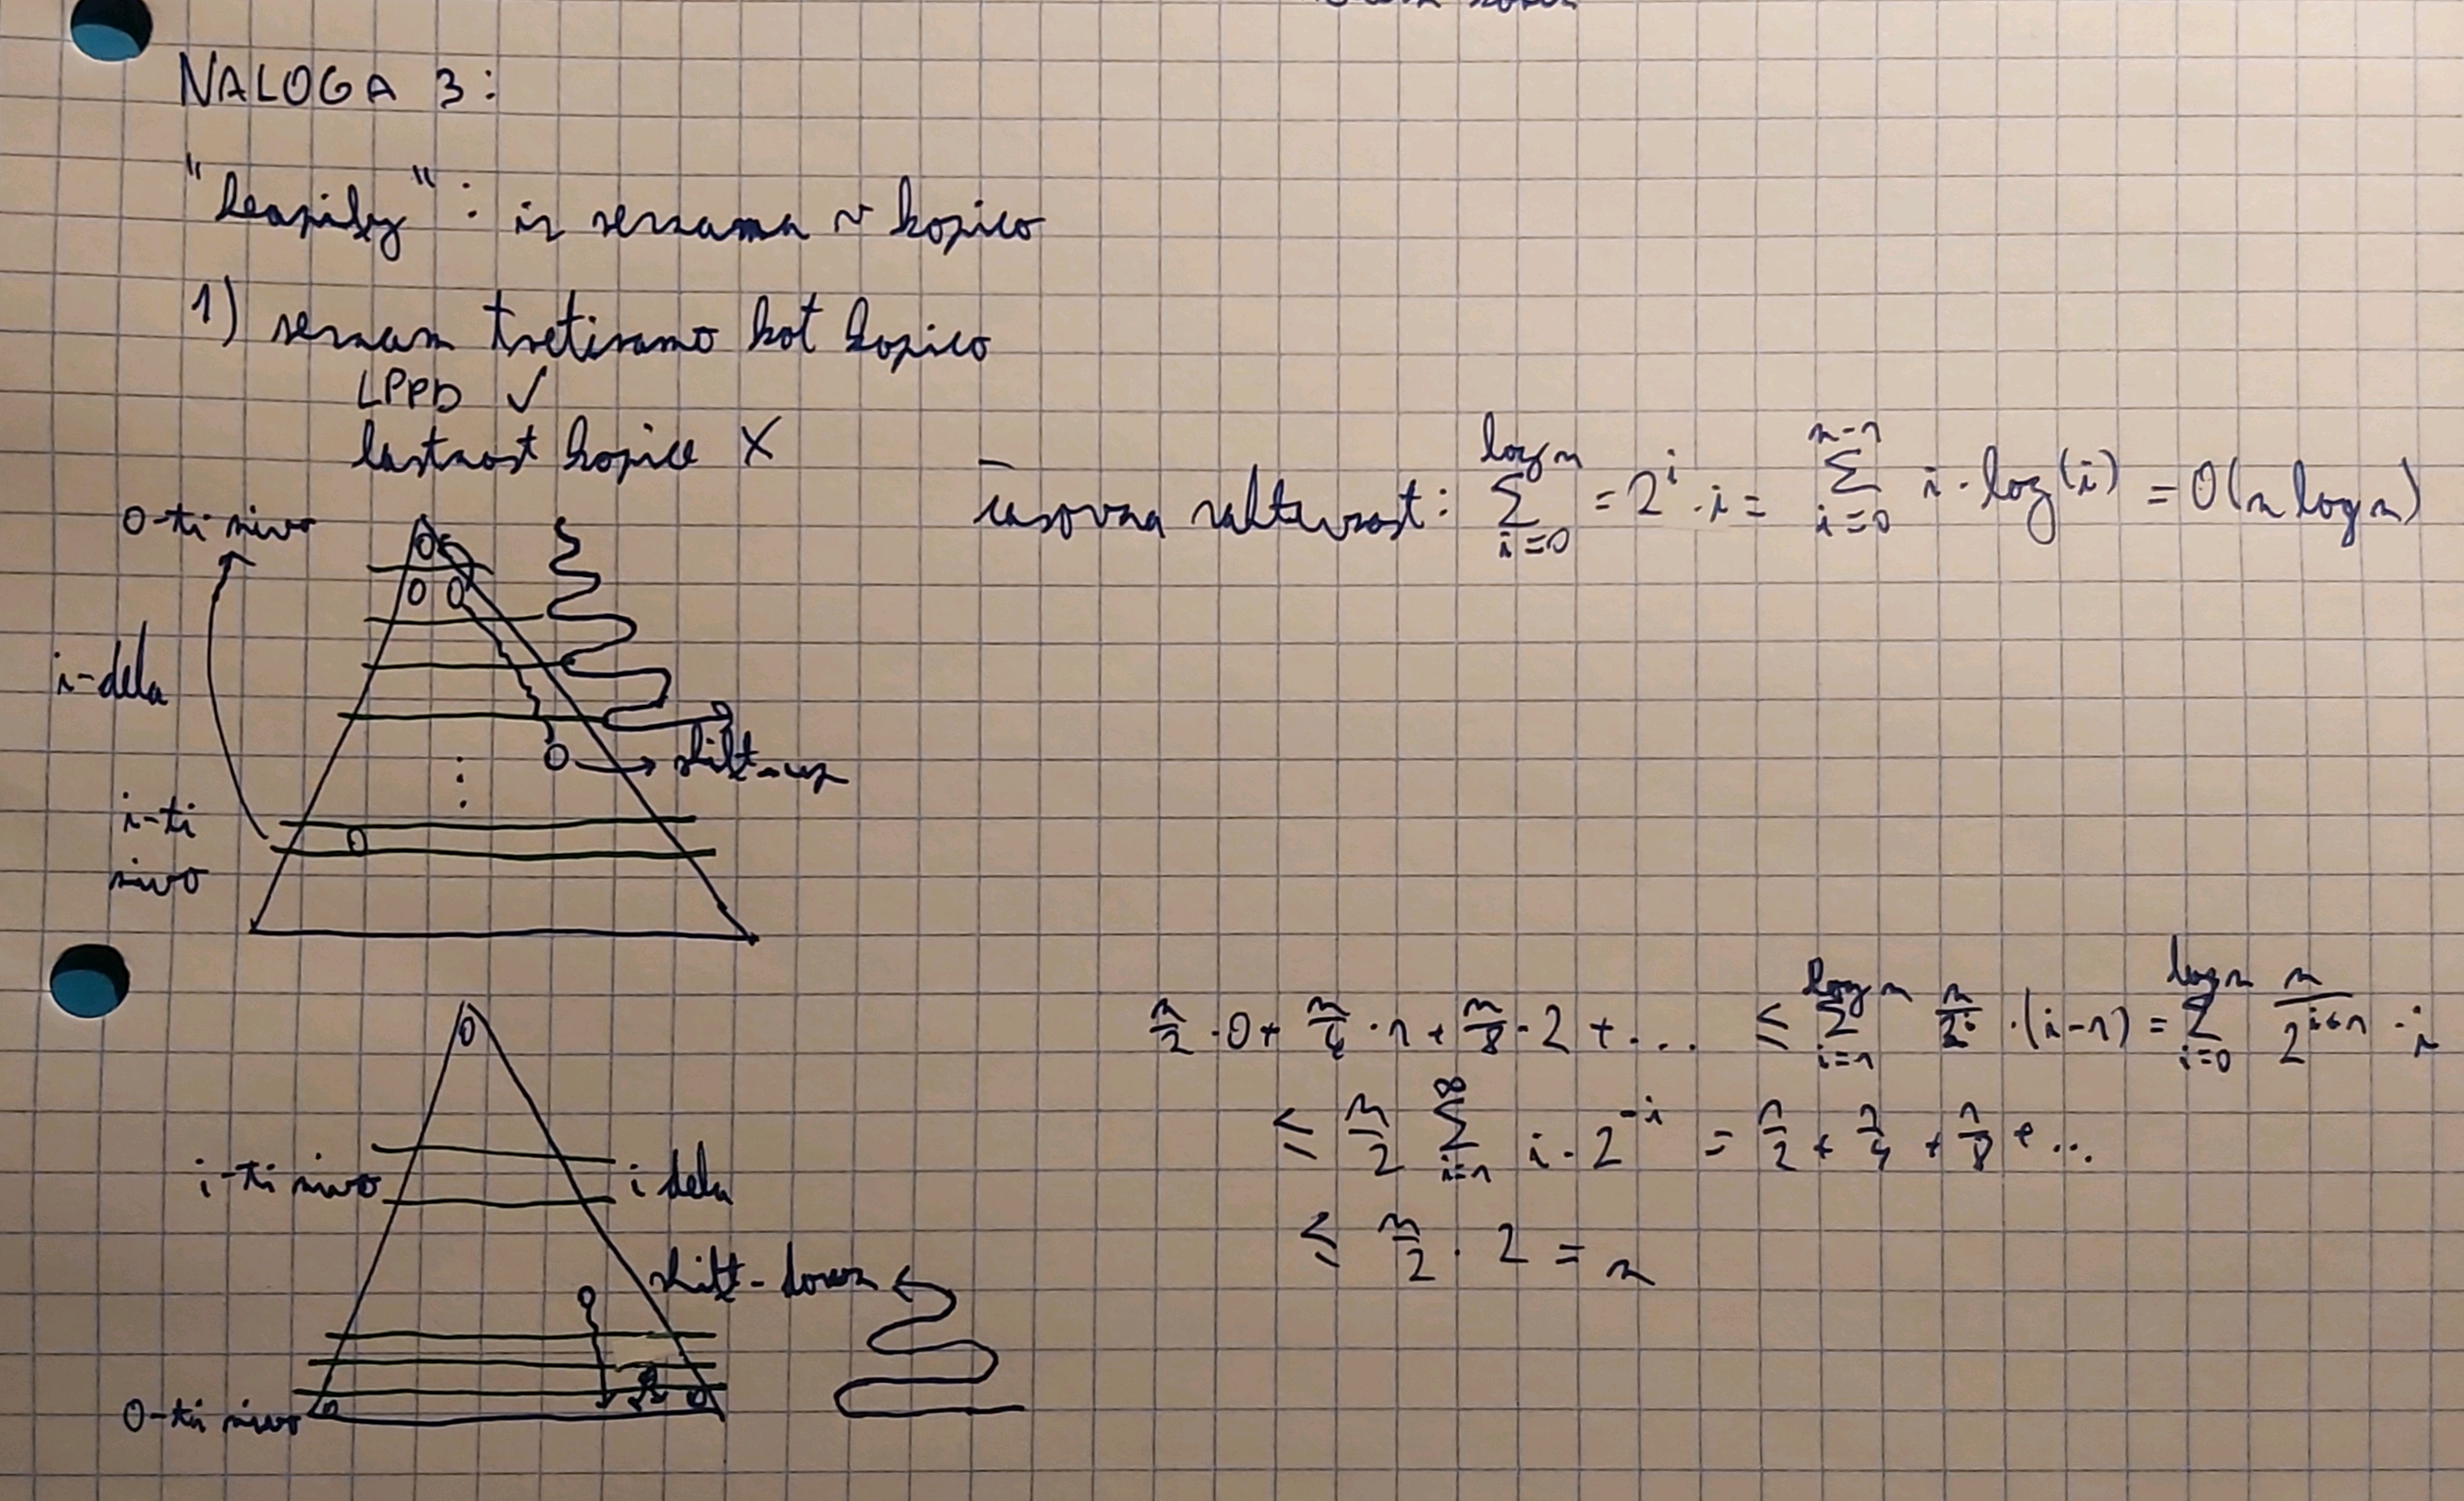 NALOGA 3:
"heapify": iz seznama v kopico
1) seznam tretiramo kot kopico
LPPD ✓
lastnost kopice X
časovna zahtevnost: \sum_{i=0}^{log n} = 2^i · i = \sum_{i=0}^{n-1} i · log(i) = O(n log n)
0-ti nivo
i-dela
shift-up
i-ti
nivo
n/2 · 0 + n/4 · 1 + n/8 · 2 + ... ≤ \sum_{i=1}^{log n} n/2^i · (i-1) = \sum_{i=0}^{log n} n/2^{i+1} · i
≤ n/2 \sum_{i=1}^{∞} i · 2^{-i} = 1/2 + 2/4 + 3/8 + ...
≤ n/2 · 2 = n
i-ti nivo
i dela
shift-down
0-ti nivo